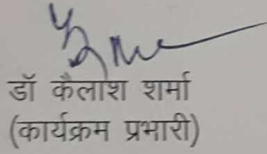 डॉ कैलाश शर्मा
(कार्यक्रम प्रभारी)